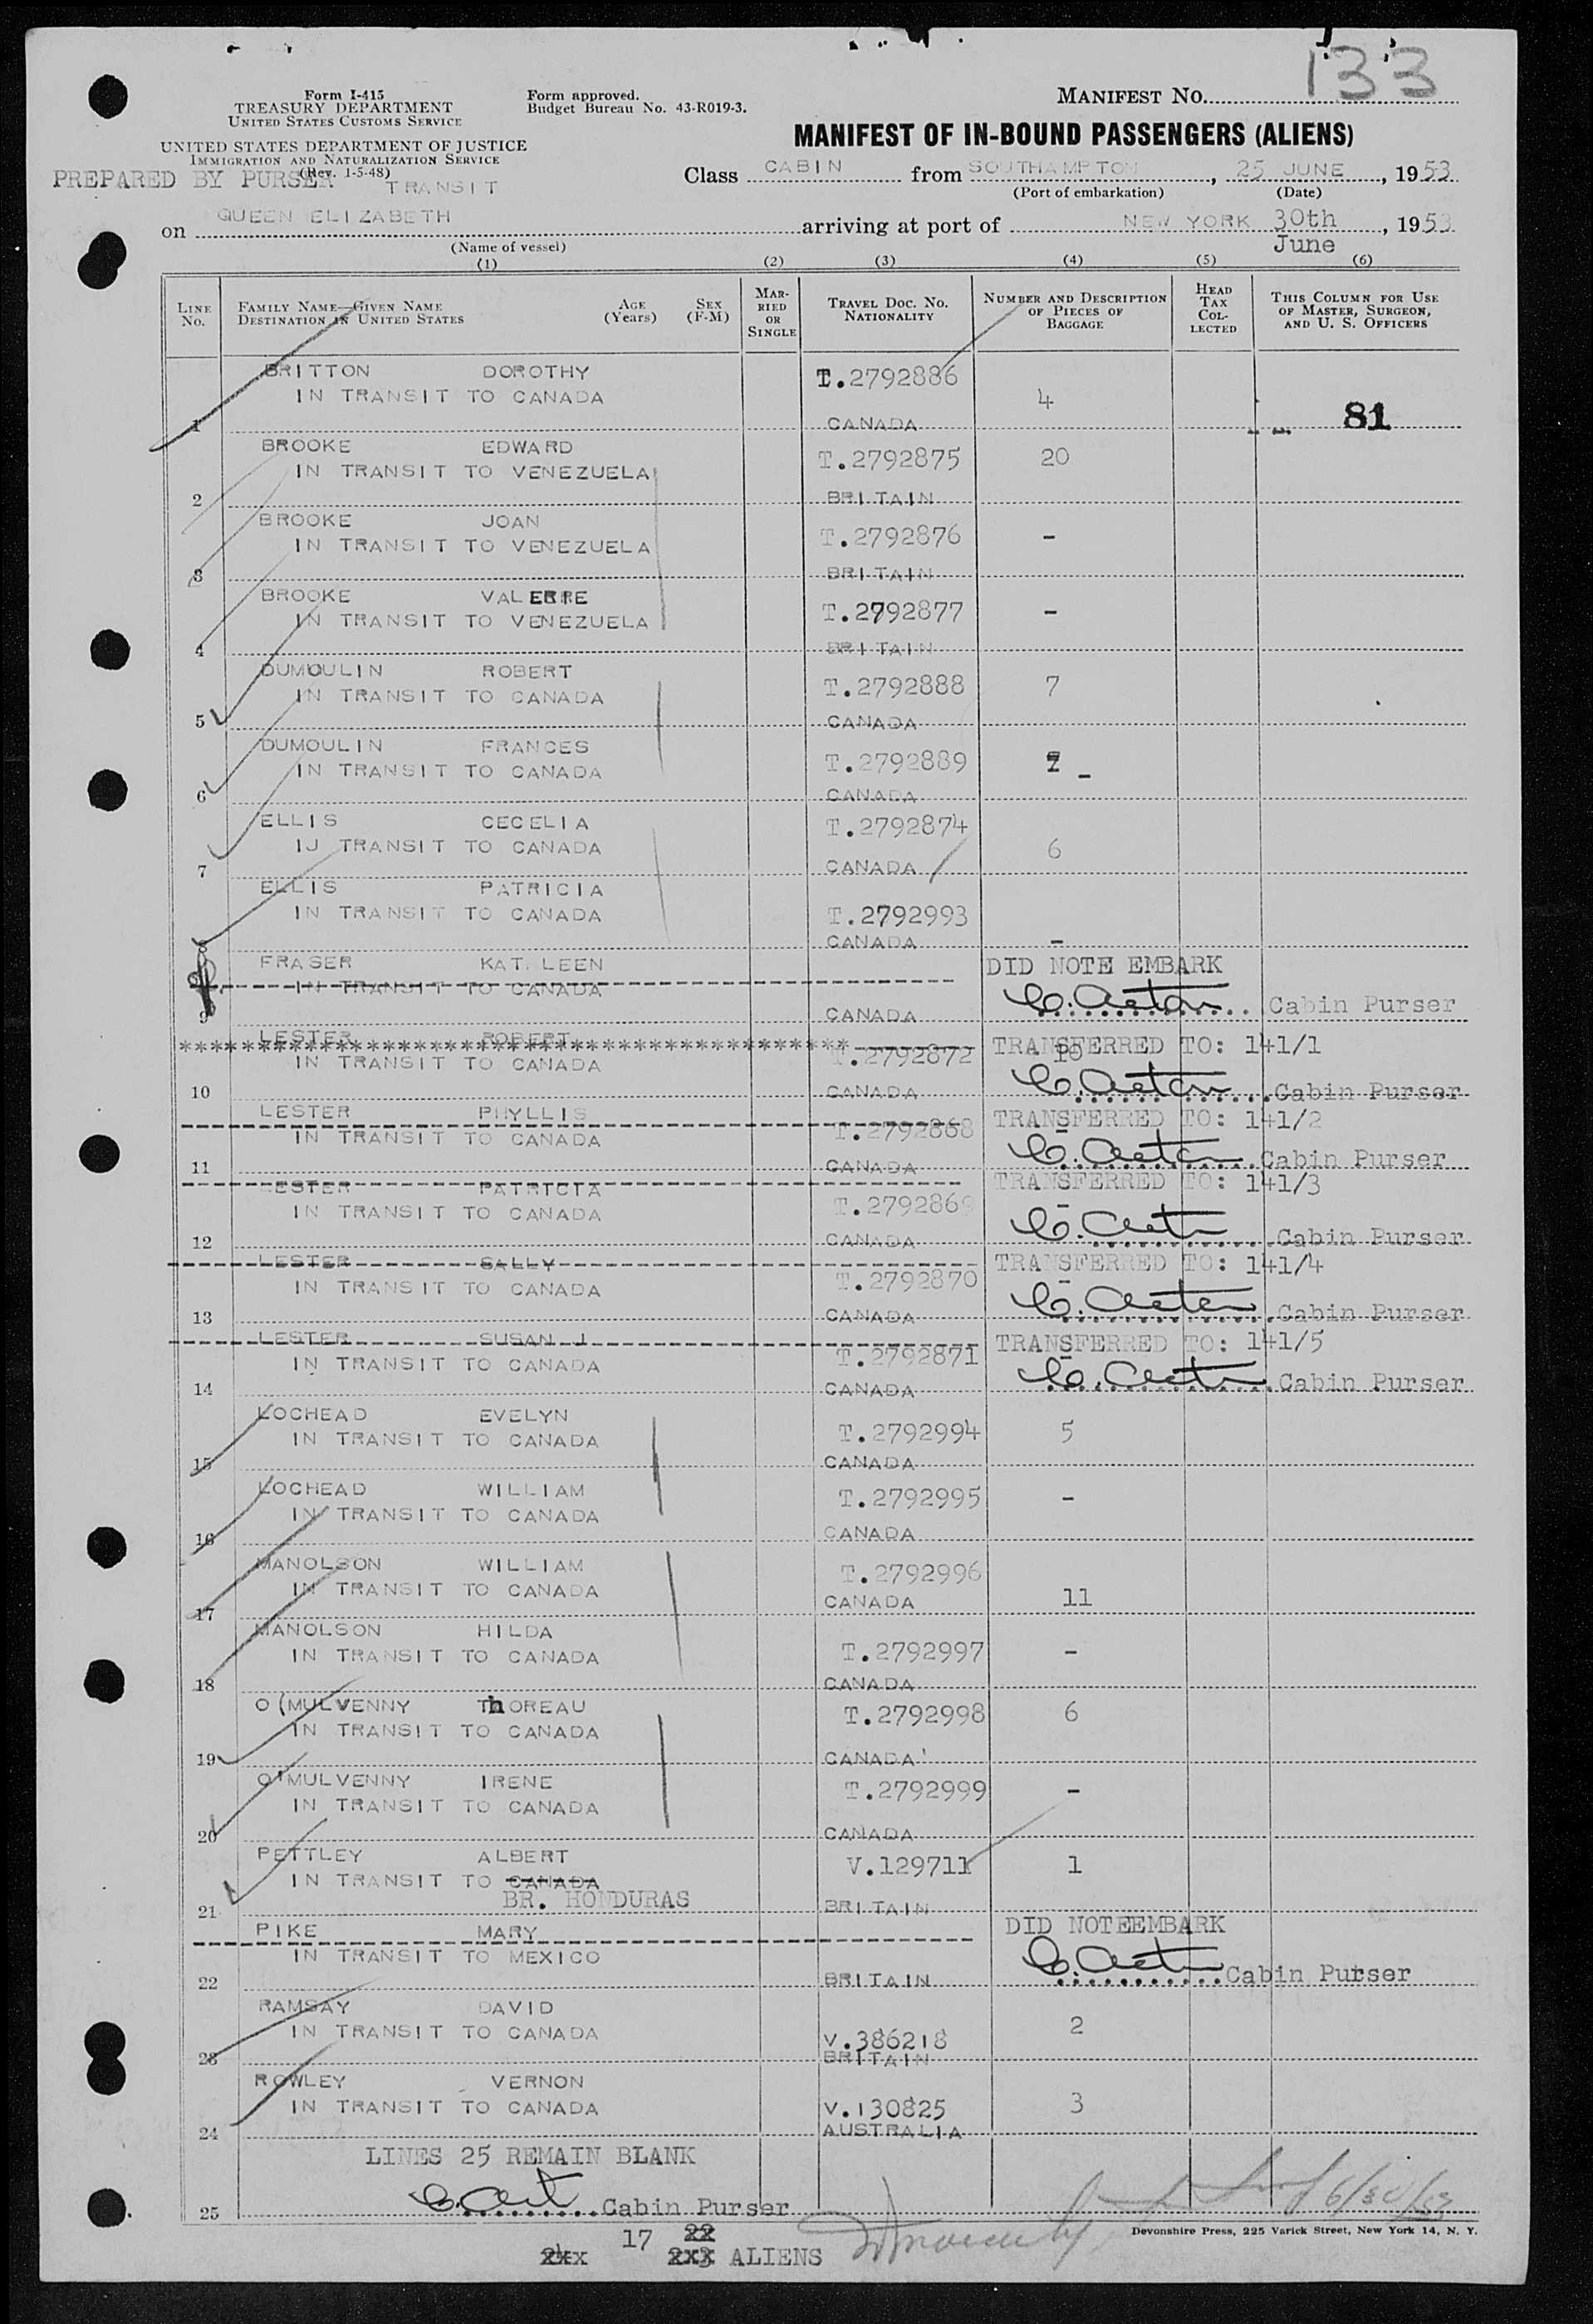 133
Form I-415
TREASURY DEPARTMENT
UNITED STATES CUSTOMS SERVICE
Form approved.
Budget Bureau No. 43-R019-3.
MANIFEST NO.
MANIFEST OF IN-BOUND PASSENGERS (ALIENS)
UNITED STATES DEPARTMENT OF JUSTICE
IMMIGRATION AND NATURALIZATION SERVICE
(Rev. 1-5-48)
PREPARED BY PURSER TRANSIT
Class CABIN from SOUTHAMPTON, 25 JUNE, 1953
(Port of embarkation) (Date)
on QUEEN ELIZABETH arriving at port of NEW YORK 30th June, 1953
(Name of vessel)
(1) (2) (3) (4) (5) (6)
LINE NO. FAMILY NAME—GIVEN NAME DESTINATION IN UNITED STATES AGE (Years) SEX (F-M) MARRIED OR SINGLE TRAVEL DOC. NO. NATIONALITY NUMBER AND DESCRIPTION OF PIECES OF BAGGAGE HEAD TAX COLLECTED THIS COLUMN FOR USE OF MASTER, SURGEON, AND U. S. OFFICERS
BRITTON DOROTHY T.2792886
IN TRANSIT TO CANADA 4
1 CANADA 81
BROOKE EDWARD T.2792875 20
IN TRANSIT TO VENEZUELA
2 BRITAIN
BROOKE JOAN T.2792876 -
IN TRANSIT TO VENEZUELA
3 BRITAIN
BROOKE VALERIE T.2792877 -
IN TRANSIT TO VENEZUELA
4 BRITAIN
DUMOULIN ROBERT T.2792888 7
IN TRANSIT TO CANADA
5 CANADA
DUMOULIN FRANCES T.2792889 -
IN TRANSIT TO CANADA
6 CANADA
ELLIS CECELIA T.2792874
IJ TRANSIT TO CANADA 6
7 CANADA
ELLIS PATRICIA
IN TRANSIT TO CANADA T.2792993
8 CANADA -
FRASER KAT LEEN DID NOTE EMBARK
IN TRANSIT TO CANADA C. Acton Cabin Purser
9 CANADA
LESTER ROBERT T.2792872 10 TRANSFERRED TO: 141/1
IN TRANSIT TO CANADA
10 CANADA C. Acton Cabin Purser
LESTER PHYLLIS T.2792868 TRANSFERRED TO: 141/2
IN TRANSIT TO CANADA -
11 CANADA C. Acton Cabin Purser
LESTER PATRICIA T.2792869 TRANSFERRED TO: 141/3
IN TRANSIT TO CANADA -
12 CANADA C. Acton Cabin Purser
LESTER SALLY T.2792870 TRANSFERRED TO: 141/4
IN TRANSIT TO CANADA -
13 CANADA C. Acton Cabin Purser
LESTER SUSAN J T.2792871 TRANSFERRED TO: 141/5
IN TRANSIT TO CANADA -
14 CANADA C. Acton Cabin Purser
LOCHEAD EVELYN T.2792994 5
IN TRANSIT TO CANADA
15 CANADA
LOCHEAD WILLIAM T.2792995 -
IN TRANSIT TO CANADA
16 CANADA
MANOLSON WILLIAM T.2792996
IN TRANSIT TO CANADA 11
17 CANADA
MANOLSON HILDA T.2792997 -
IN TRANSIT TO CANADA
18 CANADA
O(MULVENNY ThOREAU T.2792998 6
IN TRANSIT TO CANADA
19 CANADA'
O'MULVENNY IRENE T.2792999 -
IN TRANSIT TO CANADA
20 CANADA
PETTLEY ALBERT V.129711 1
IN TRANSIT TO CANADA
BR. HONDURAS
21 BRITAIN
PIKE MARY DID NOTEEMBARK
IN TRANSIT TO MEXICO C. Acton Cabin Purser
22 BRITAIN
RAMSAY DAVID 2
IN TRANSIT TO CANADA V.386218
23 BRITAIN
ROWLEY VERNON 3
IN TRANSIT TO CANADA V.130825
24 AUSTRALIA
LINES 25 REMAIN BLANK
25 C. Acton Cabin Purser
6/30/53
Devonshire Press, 225 Varick Street, New York 14, N. Y.
17 22
24xx 2x3 ALIENS